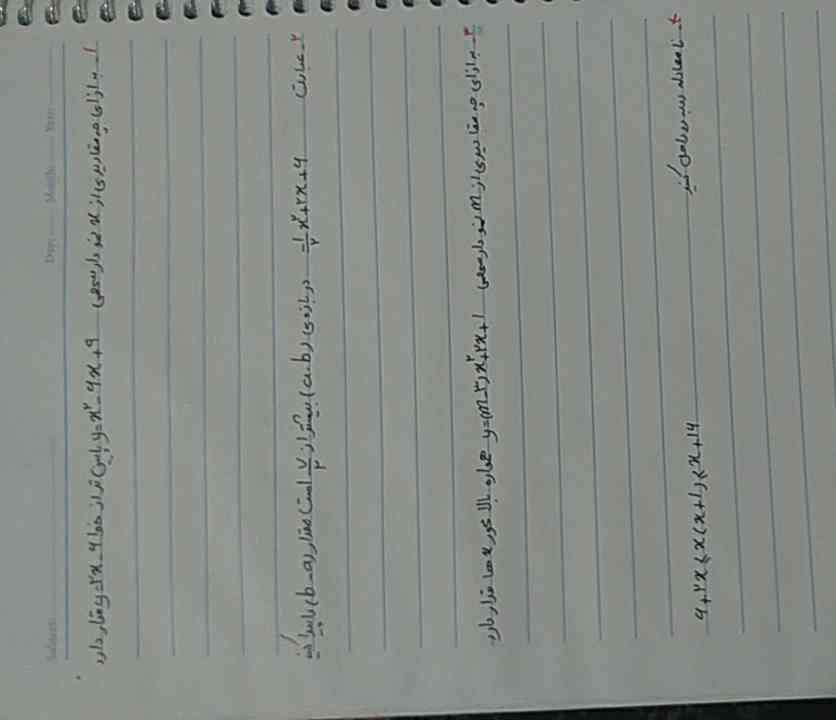 Subject: Day: Month: Year:
۱_ به ازای چه مقادیری از x نمودار سهمی y=x^۲-۶x+۹ پایین تر از خط y=۲x-۶ قرار دارد
۲_ عبارت -۱/۲x^۲+۲x+۶ در بازه ی (a,b) بیشتر از ۷/۲ است مقدار (b-a) را بیابید
۳_ به ازای چه مقادیری از m نمودار سهمی y=(m-۲)x^۲+۲x+۱ همواره بالای محور x ها قرار دارد
۴_ نامعادله زیر را حل کنید
۶+۲x<x(x+۱)<x+۱۶